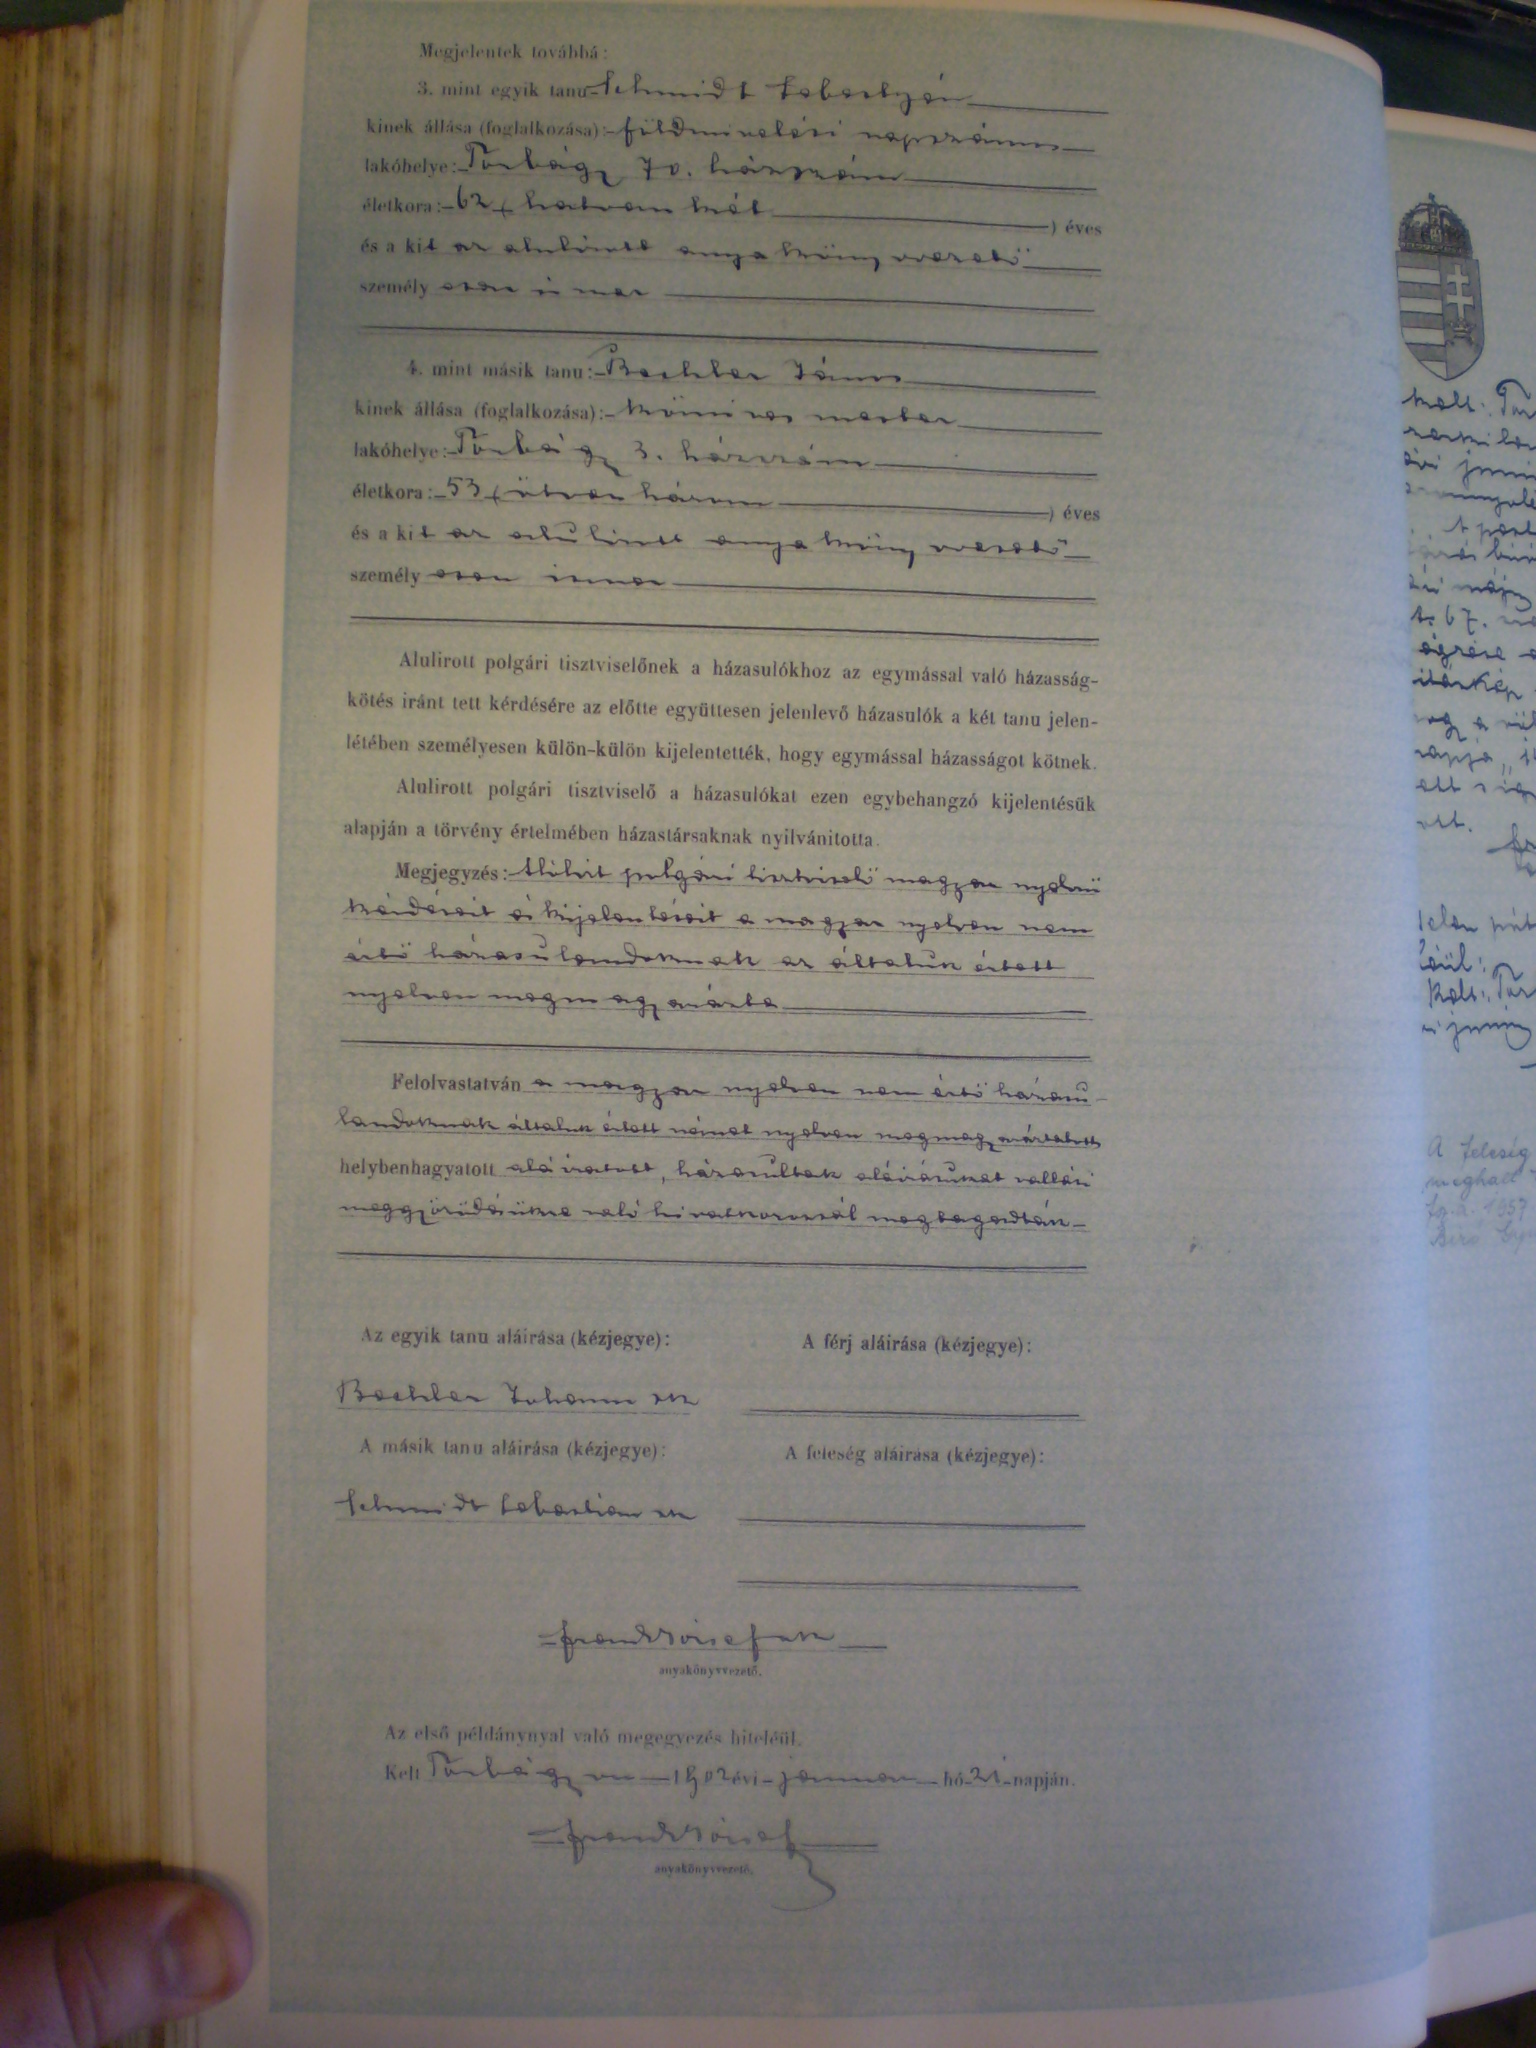 Megjelentek továbbá:
3. mint egyik tanu Schmidt Sebestyén
kinek állása (foglalkozása): földmivelési napszámos
lakóhelye: Torbágy 70. házszám
életkora: 62 ( hatvan két ) éves
és a kit az alulirott anyakönyvvezető
személyesen ismer
4. mint másik tanu: Bechler János
kinek állása (foglalkozása): kőmives mester
lakóhelye: Torbágy 3. házszám
életkora: 53 ( ötven három ) éves
és a kit az alulirott anyakönyvvezető
személyesen ismer
Alulirott polgári tisztviselőnek a házasulókhoz az egymással való házasság-
kötés iránt tett kérdésére az előtte együttesen jelenlevő házasulók a két tanu jelen-
létében személyesen külön-külön kijelentették, hogy egymással házasságot kötnek.
Alulirott polgári tisztviselő a házasulókat ezen egybehangzó kijelentésük
alapján a törvény értelmében házastársaknak nyilvánitotta.
Megjegyzés: Alulirt polgári tisztviselő magyar nyelvü
kérdéseit és kijelentéseit a magyar nyelven nem
értő házasulandoknak az általuk értett
nyelven megmagyarázta
Felolvastatván a magyar nyelven nem értő házasu-
landoknak általuk értett német nyelven megmagyaráztatott
helybenhagyatott aláiratott, házasultak aláirásukat vallási
meggyőződésükre való hivatkozással megtagadták
Az egyik tanu aláirása (kézjegye): A férj aláirása (kézjegye):
Bechler Johann sk
A másik tanu aláirása (kézjegye): A feleség aláirása (kézjegye):
Schmidt Sebastian sk
Frank József sk
anyakönyvvezető.
Az első példánynyal való megegyezés hiteléül.
Kelt Torbágyon 1902 évi januar hó 21 napján.
Frank József
anyakönyvvezető.
Kelt: Tor
t. 67.
Kelt: Tor
A feleség
meghalt
1957